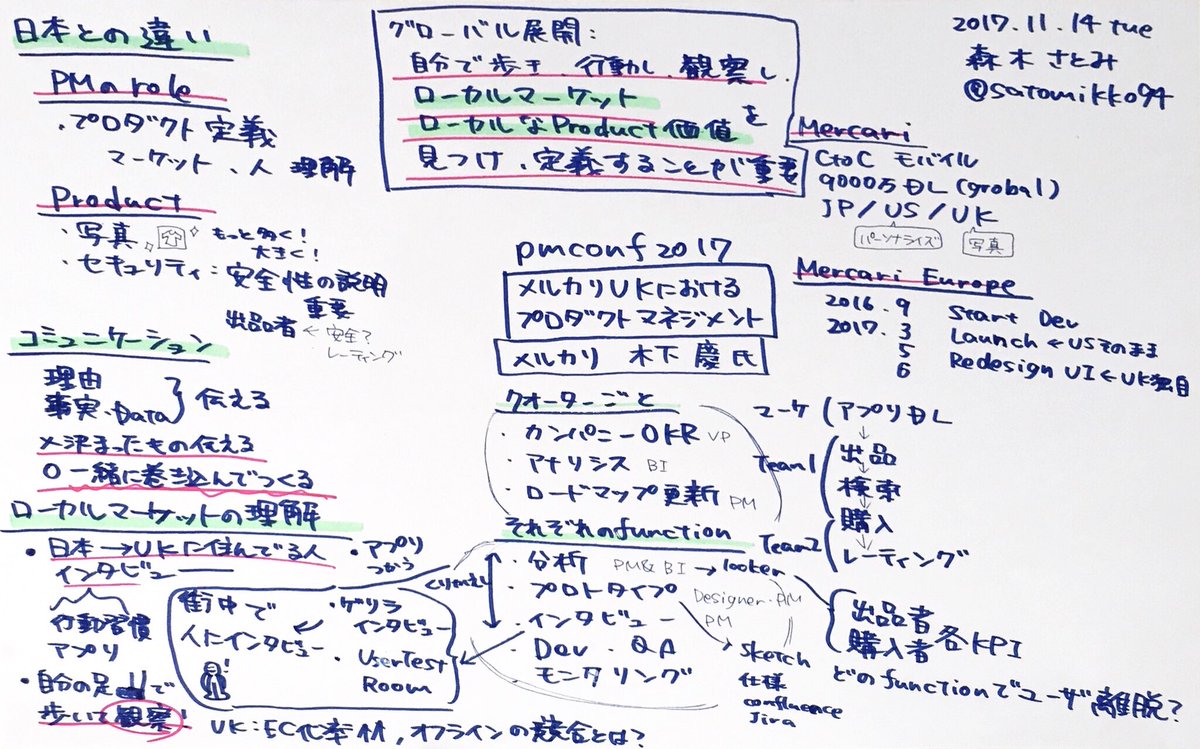 2017.11.14 tue
森木 さとみ
@satomikko94
pmconf 2017
メルカリUKにおける
プロダクトマネジメント
メルカリ 木下 慶 氏
Mercari
CtoC モバイル
9000万DL (grobal)
JP / US / UK
パーソナライズ
写真
Mercari Europe
2016.9 Start Dev
2017.3 Launch ← USそのまま
5
6 Redesign UI ← UK独自
クオーターごと
・カンパニーOKR VP
・アナリシス BI
・ロードマップ更新 PM
マーケ
アプリDL
↓
Team1
出品
↓
検索
↓
Team2
購入
↓
レーティング
それぞれのfunction
・分析 PM&BI → looker
・プロトタイプ Designer・PM
・インタビュー PM
・Dev・QA
モニタリング
くりかえし
Sketch
仕様
confluence
Jira
出品者
購入者
各KPI
どのfunctionでユーザ離脱?
・ゲリラ
インタビュー
街中で
人にインタビュー
・UserTest
Room
ローカルマーケットの理解
・日本→UKに住んでる人
インタビュー
行動習慣
アプリ
・アプリ
つかう
・自分の足で
歩いて観察!
UK:EC化率高, オフラインの競合とは?
コミュニケーション
理由
事実・Data
伝える
×決まったもの伝える
○一緒に巻き込んでつくる
日本との違い
PMのrole
・プロダクト定義
マーケット、人 理解
Product
・写真 もっと多く!
大きく!
・セキュリティ:安全性の説明
重要
出品者 ← 安全?
レーティング
グローバル展開:
自分で歩き、行動し、観察し、
ローカルマーケット
ローカルなProduct価値 を
見つけ、定義することが重要